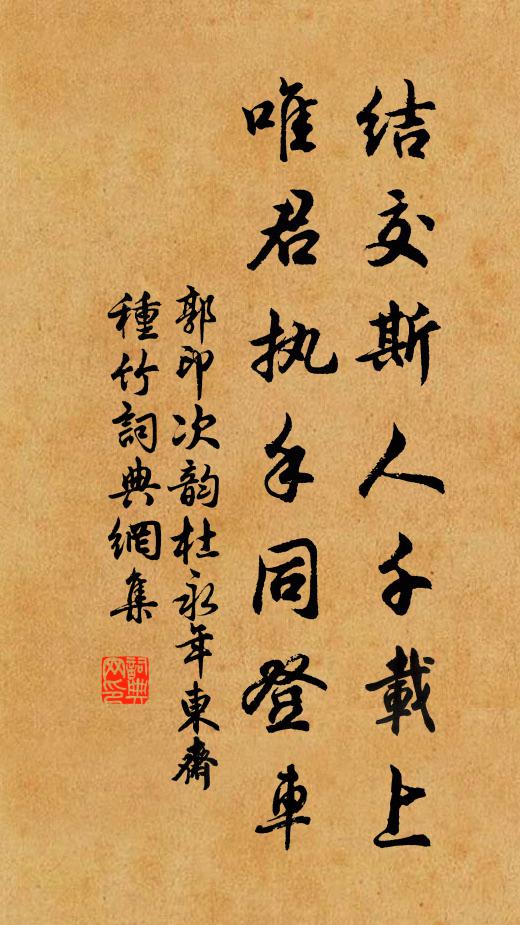 结交斯人千載上
唯君执手同登車
郭印次韵杜永年東齋
種竹詞典網集
詞典网印